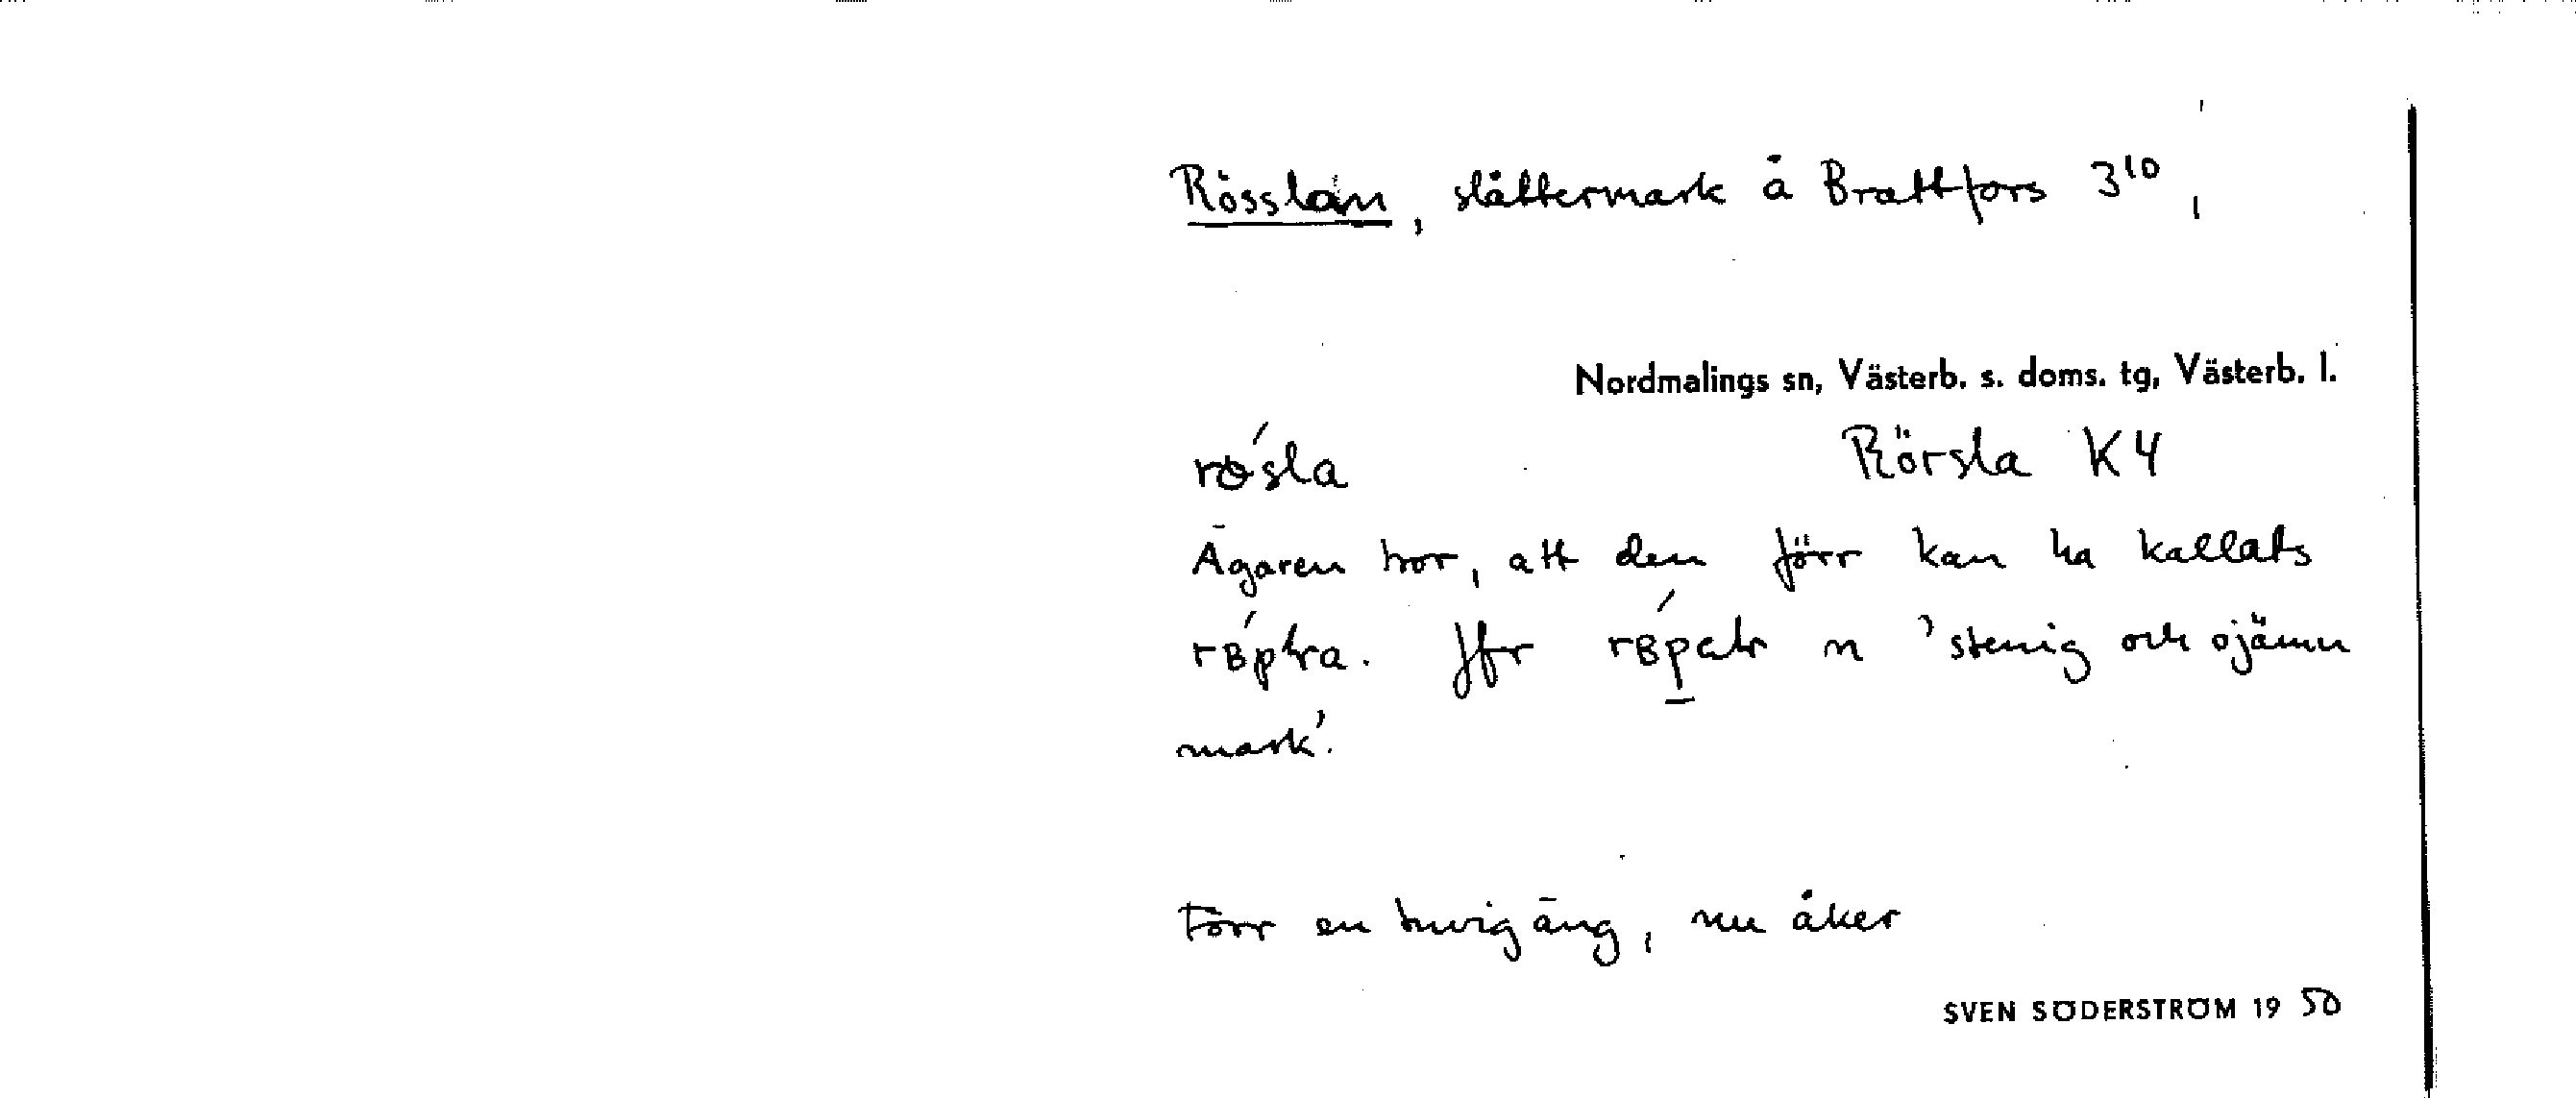 Rösslån, slåttermark å Brattfors 3¹⁰,
Nordmalings sn, Västerb. s. doms. tg, Västerb. l.
rɵ́sla Rörsla K4
Ägaren tror, att den förr kan ha kallats
rɞ́ptra. Jfr n 'stenig och ojämn
mark'.
Förr en tuvig äng, nu åker
SVEN SÖDERSTRÖM 19 50